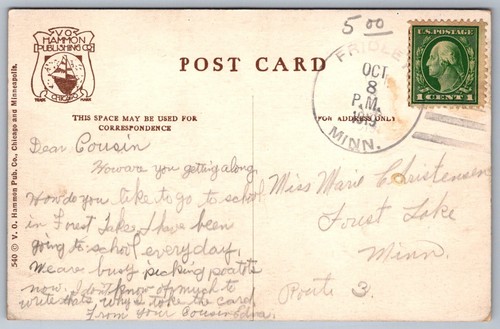 5 00
V.O.
HAMMON
PUBLISHING CO
TRADE CHICAGO MARK
POST CARD
FRIDLE
OCT
8
P.M.
MINN.
U.S. POSTAGE
1 CENT 1
THIS SPACE MAY BE USED FOR
CORRESPONDENCE
FOR ADDRESS ONLY
540 © V. O. Hammon Pub. Co., Chicago and Minneapolis.
Dear Cousin
How are you getting along.
How do you like to go to school
in Forest Lake. I have been
going to school everyday.
We are busy picking potatos
now. I don't know of much to
write thats why I take the card.
From your Cousin Edna.
Miss Marie Christensen
Forest Lake
Minn.
Route 3.